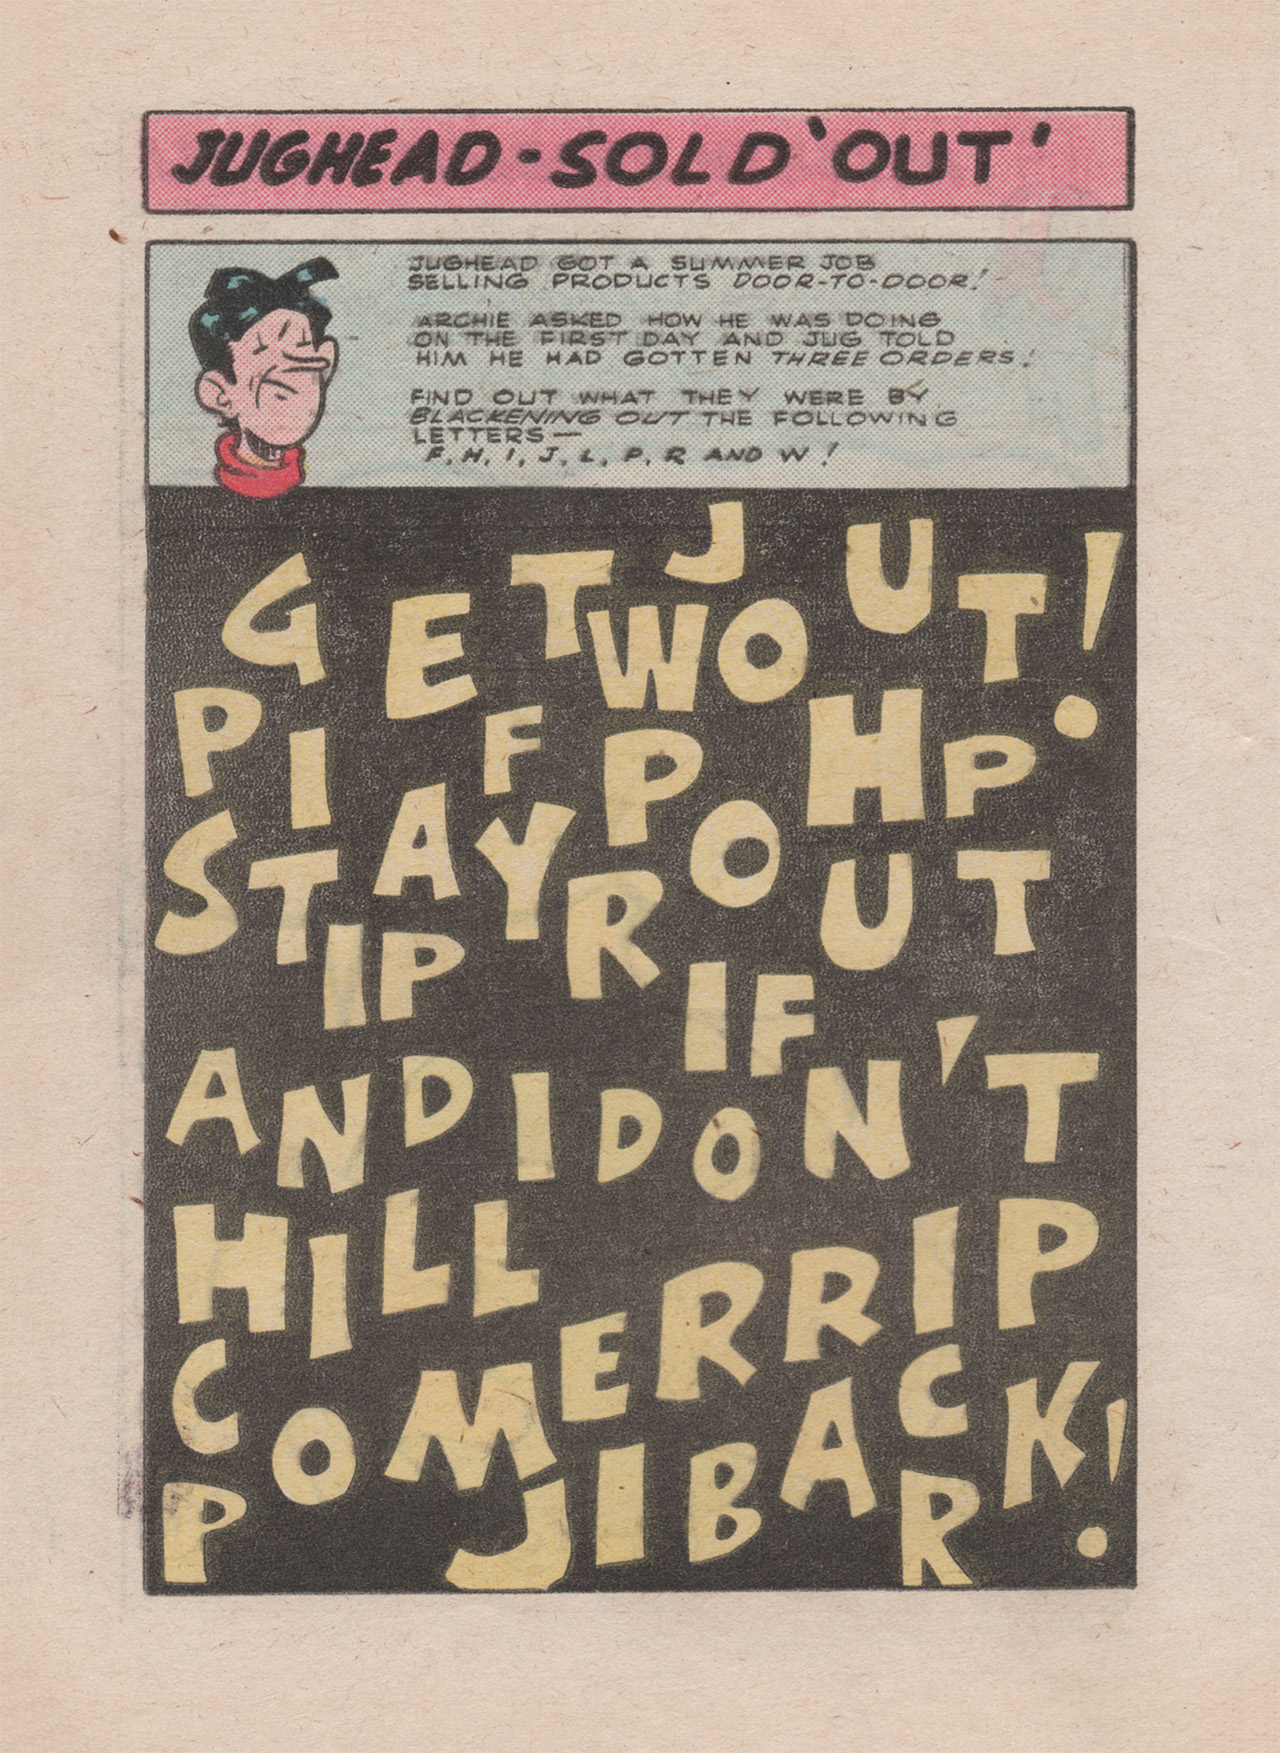 JUGHEAD - SOLD 'OUT'
JUGHEAD GOT A SUMMER JOB
SELLING PRODUCTS DOOR-TO-DOOR!
ARCHIE ASKED HOW HE WAS DOING
ON THE FIRST DAY AND JUG TOLD
HIM HE HAD GOTTEN THREE ORDERS!
FIND OUT WHAT THEY WERE BY
BLACKENING OUT THE FOLLOWING
LETTERS—
F, H, I, J, L, P, R AND W!
G E T J W O U T !
P I F P H P
S T A Y R O U T
I P I F
A N D I D O N ' T
H I L L E R R I P
C O M B A C K !
P J I R